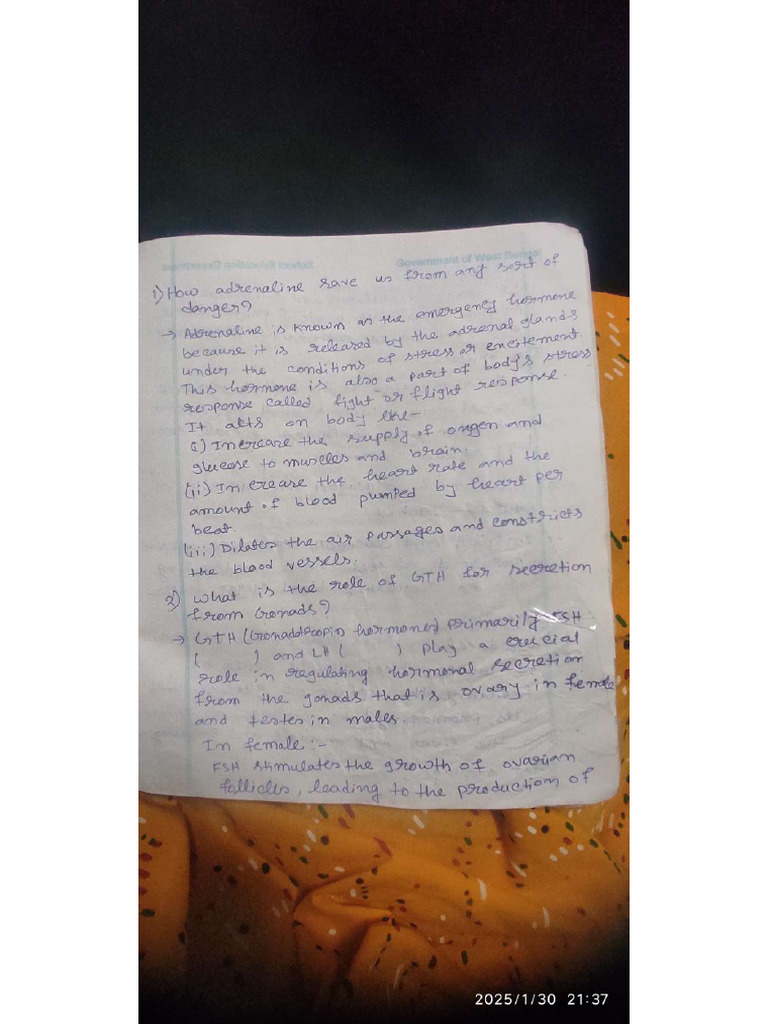 Government of West Bengal
1) How adrenaline save us from any sort of
danger?
→ Adrenaline is known as the emergency hormone
because it is released by the adrenal glands
under the conditions of stress or encitement.
This hormone is also a part of body's stress
response called fight or flight response.
It acts on body like-
(i) Increase the supply of oxgen and
glucose to muscles and brain.
(ii) Increase the heart rate and the
amount of blood pumped by heart per
beat.
(iii) Dilates the air passages and constricts
the blood vessels.
2) What is the role of GTH for secretion
from Gonads?
→ GTH (Gonadotropic hormones) primarily FSH
( ) and LH ( ) play a crucial
role in regulating hormonal secretion
from the gonads that is ovary in female
and testes in males.
In female :-
FSH stimulates the growth of ovarian
follicles, leading to the production of
2025/1/30 21:37